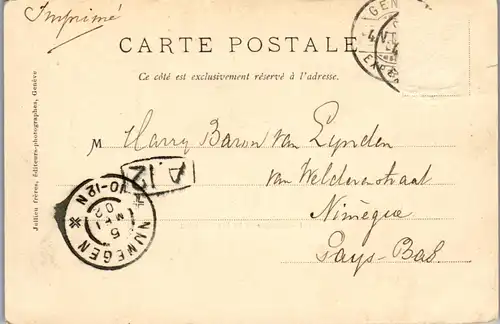 Imprimé
CARTE POSTALE
Ce côté est exclusivement réservé à l'adresse.
M Harry Baron van Lynden
van Welderenstraat
Nimègue
Pays-Bas.
A.12
NIJMEGEN
10-12N
5
MEI
02
GEN
EXP
Jullien frères, éditeurs-photographes, Genève